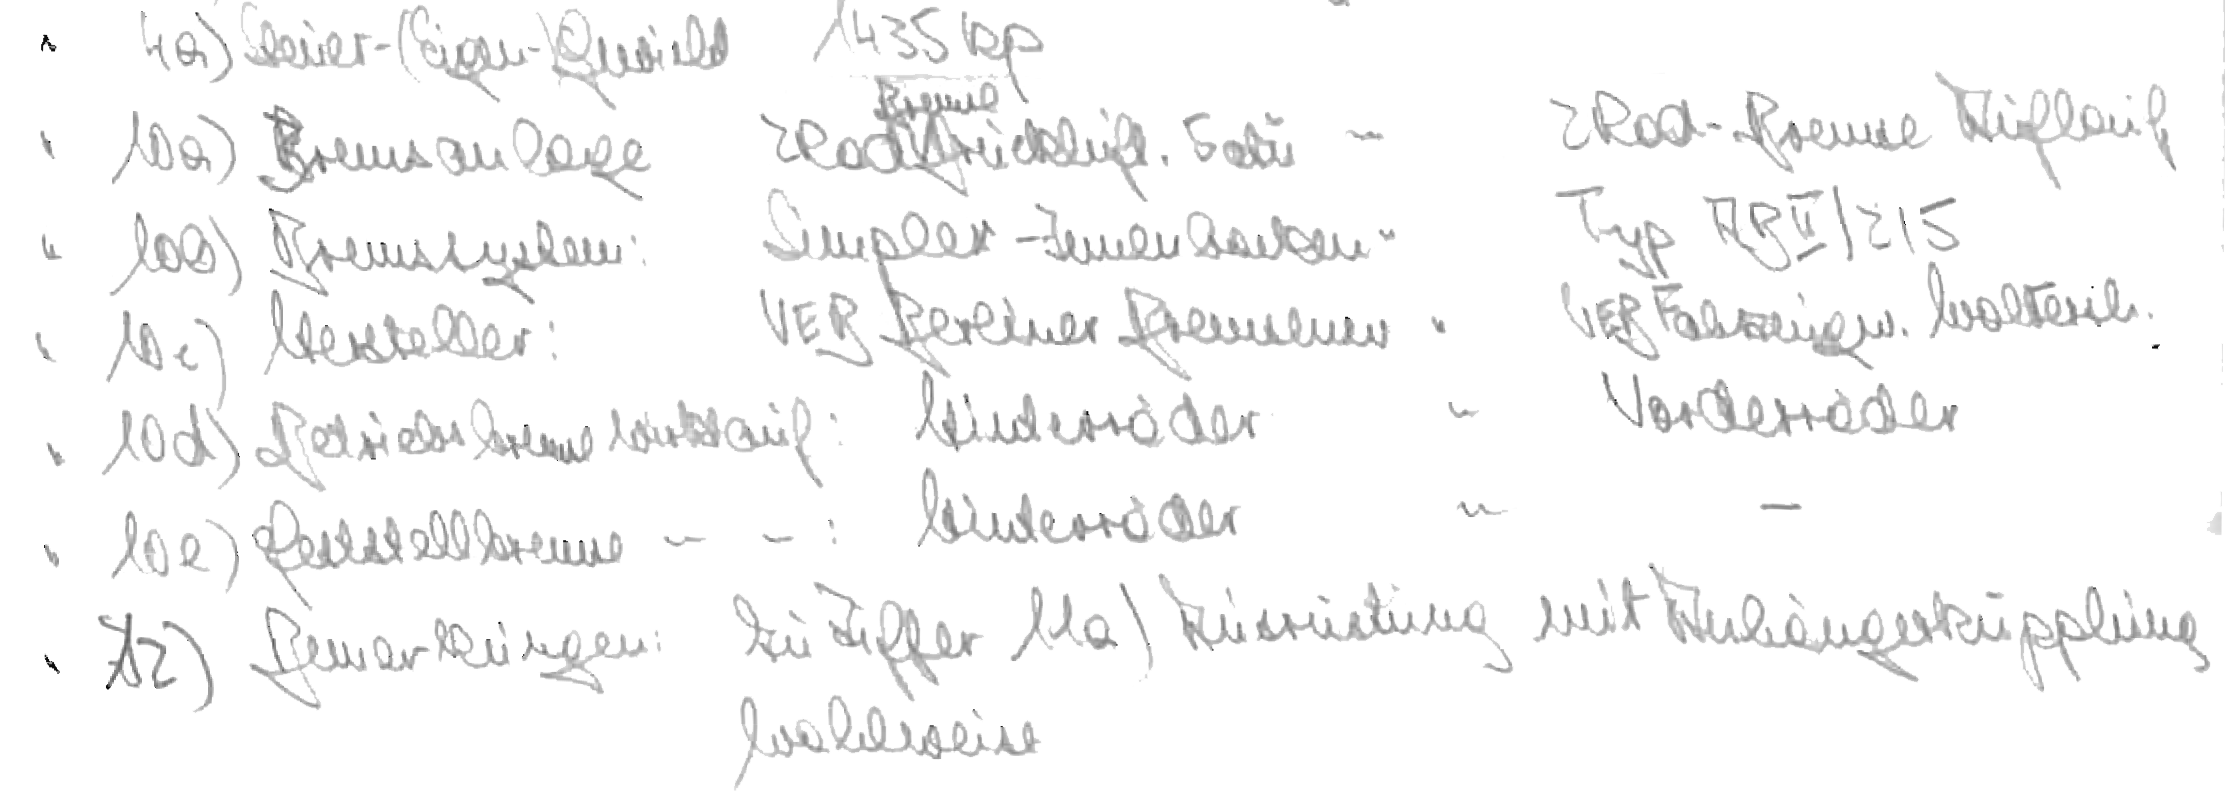 " 4a) Leer-(Eigen-)Gewicht 1435 kp
Bremse
" 10a) Bremsanlage 2Rad Druckluft. - 2Rad-Bremse Auflauf
" 10b) Bremssystem: Simplex-Innenbacken " Typ AB II/215
" 10c) Hersteller: VEB Berliner Bremsenw " VEB Fahrzeugw. Waltersh.
" 10d) Betriebsbremse wirkt auf: Hinterräder " Vorderräder
" 10e) Feststellbremse - - : Hinterräder " -
" 12) Bemerkungen: zu Ziffer 11a) Ausrüstung mit Anhängerkupplung
wahlweise